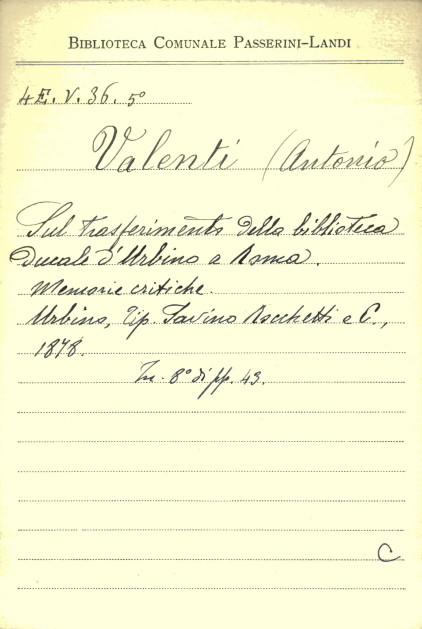 BIBLIOTECA COMUNALE PASSERINI-LANDI
4E. V. 36. 5º
Valenti (Antonio)
Sul trasferimento della biblioteca
Ducale d'Urbino a Roma.
Memorie critiche.
Urbino, Tip. Savino Rocchetti e C.,
1878.
In-8º di pp. 43.
C